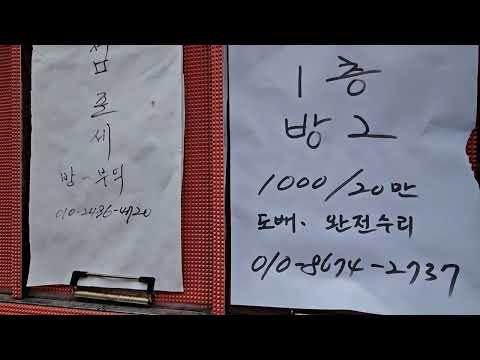 점
포
세
방-부엌
010-2436-4720
1층
방2
1000/20만
도배. 완전수리
010-8674-2737